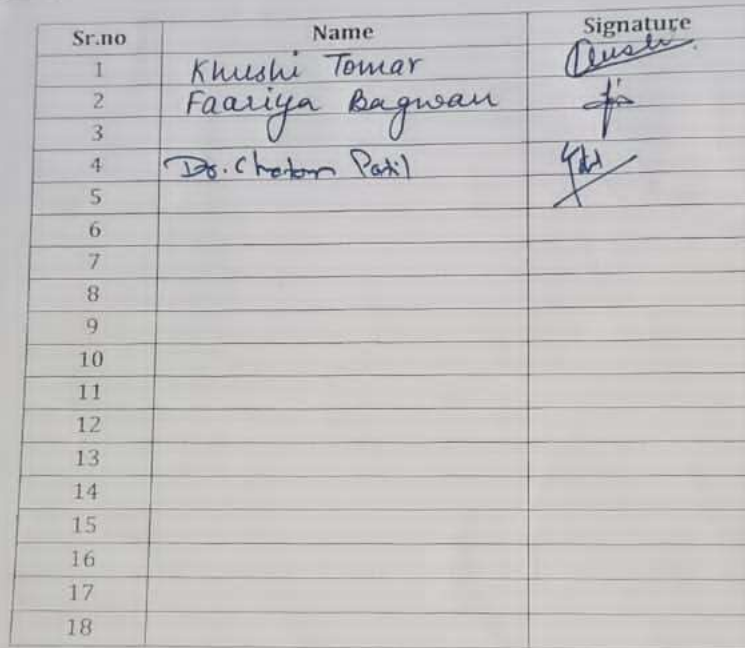 Sr.no Name Signature
1 Khushi Tomar
2 Faariya Bagwan
3
4 Dr. Chetan Patil
5
6
7
8
9
10
11
12
13
14
15
16
17
18